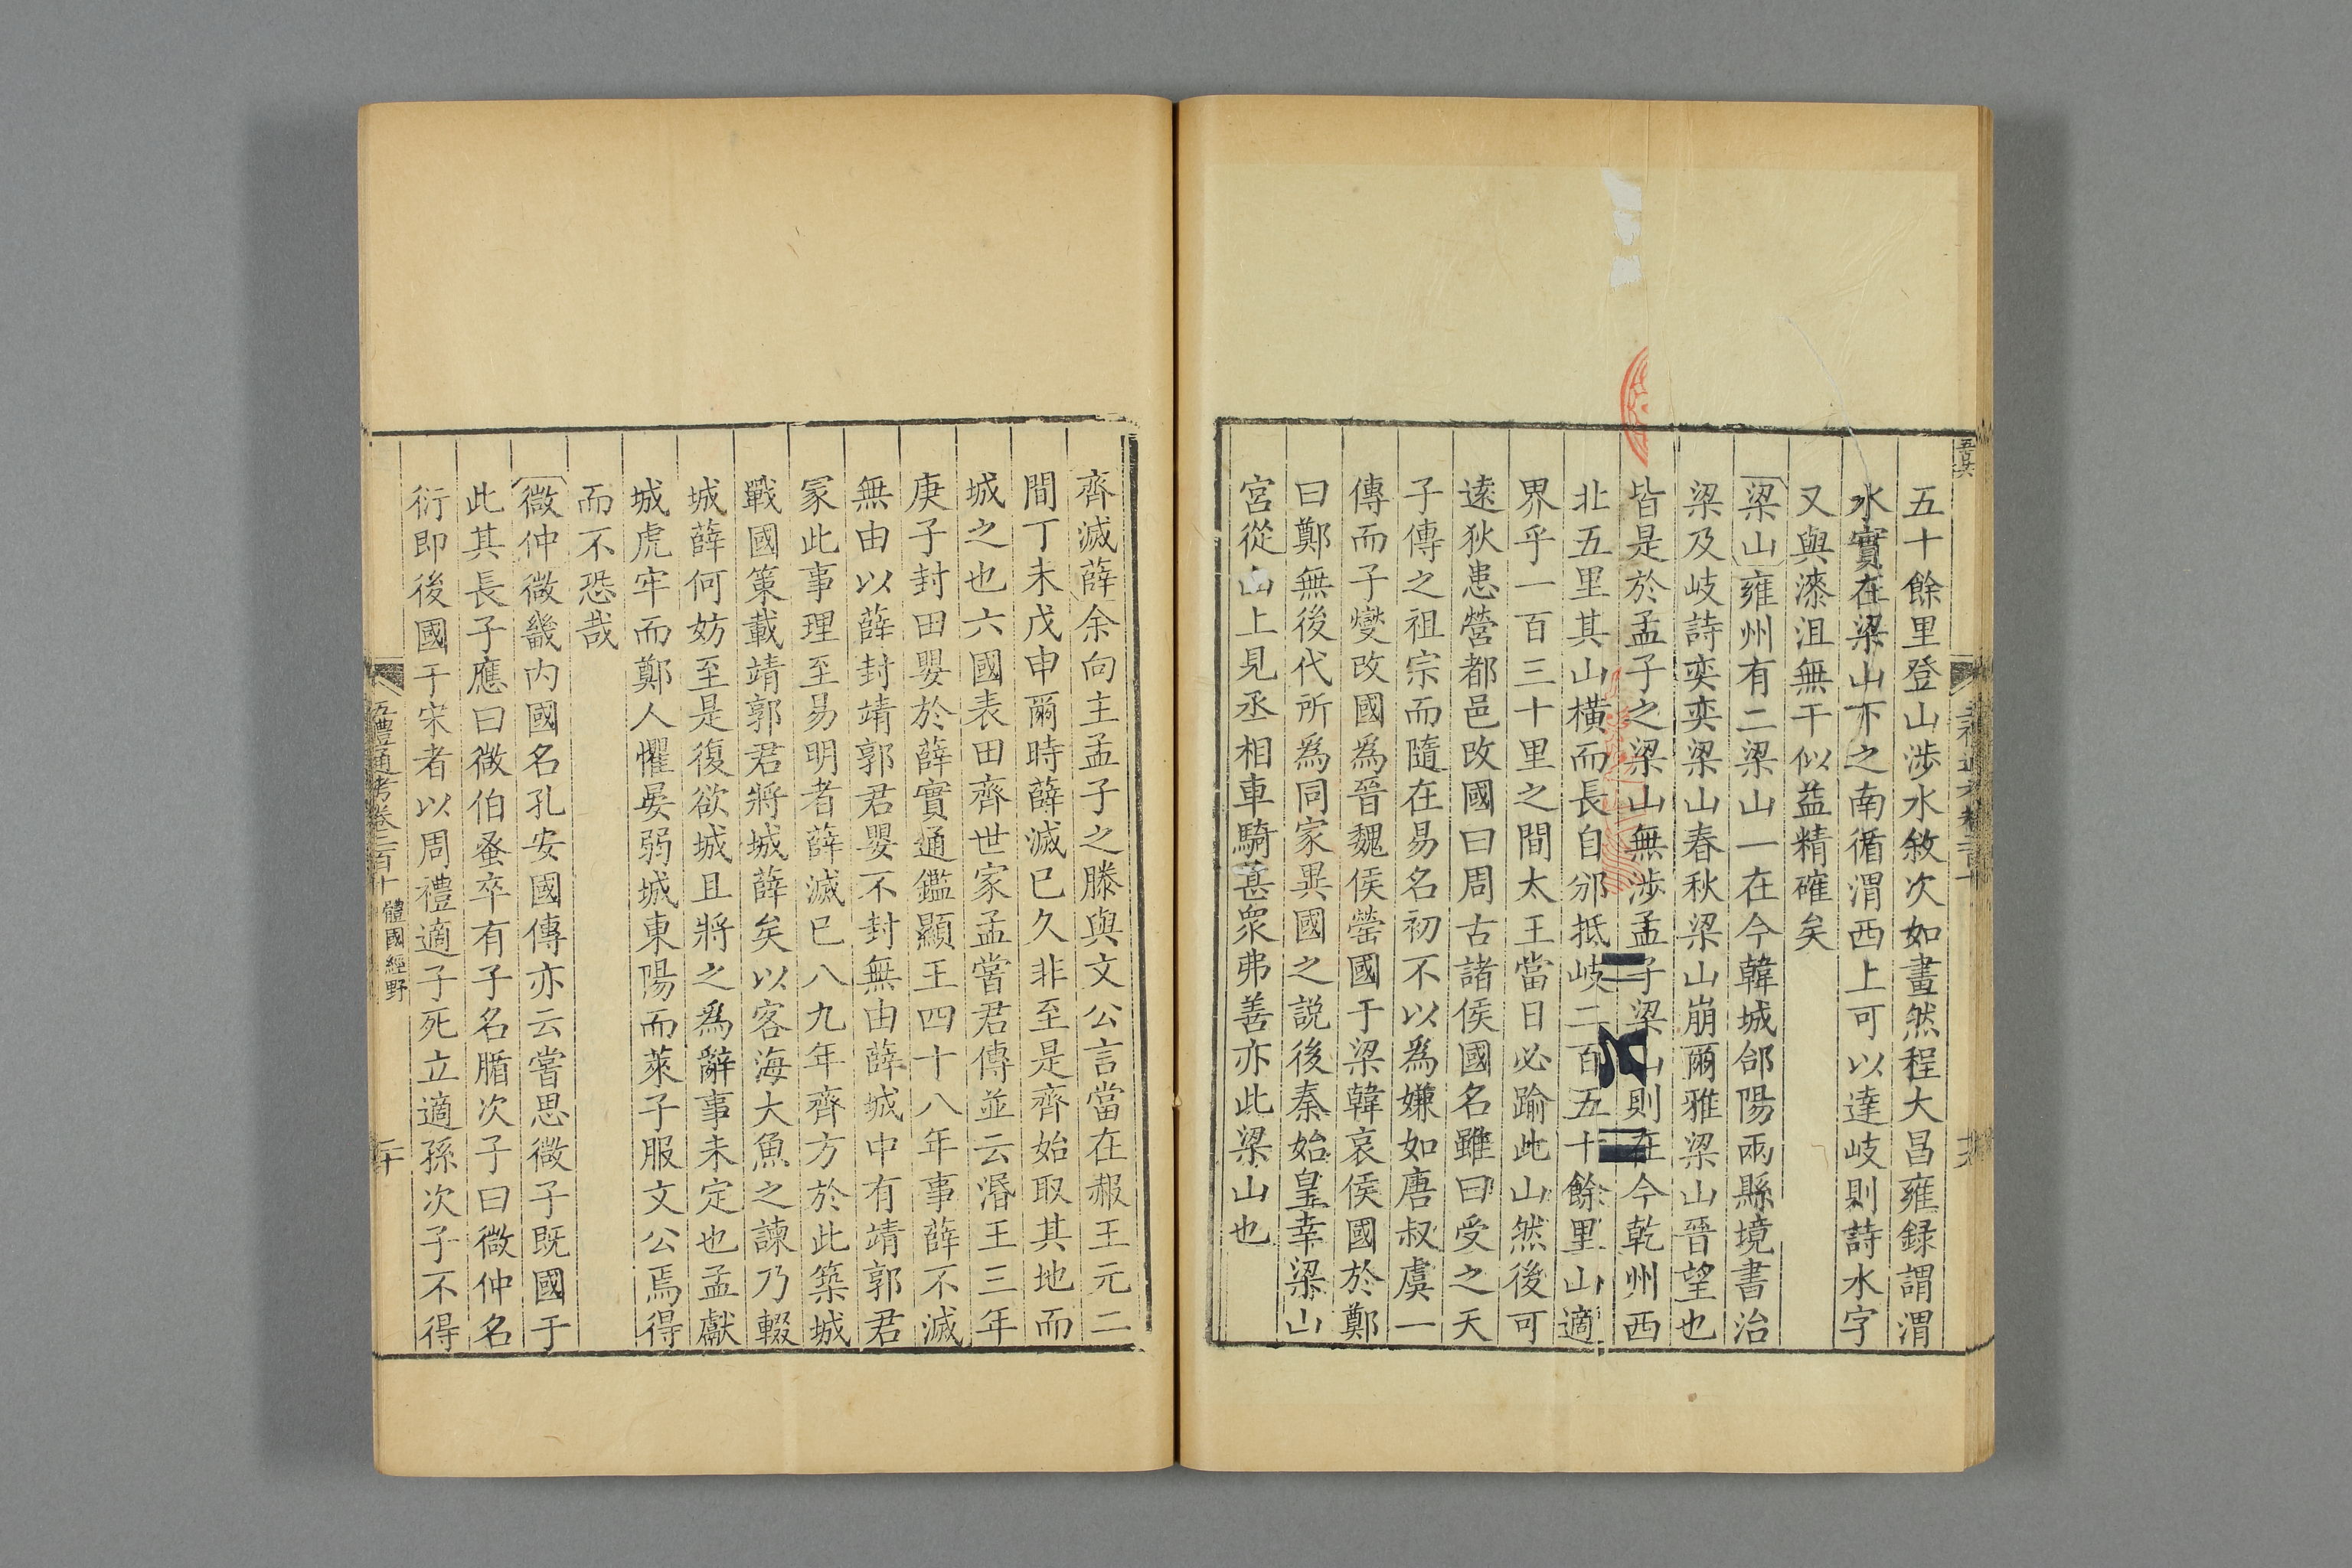 五十餘里登山涉水敘次如畫然程大昌雍録謂渭
水實在梁山下之南循渭西上可以達岐則詩水字
又與漆沮無干似益精確矣
梁山雍州有二梁山一在今韓城郃陽兩縣境書治
梁及岐詩奕奕梁山春秋梁山崩爾雅梁山晉望也
皆是於孟子之梁山無涉孟子梁山則在今乾州西
北五里其山橫而長自邠抵岐二百五十餘里山適
界乎一百三十里之間太王當日必踰此山然後可
遠狄患營都邑改國曰周古諸侯國名雖曰受之天
子傳之祖宗而隨在易名初不以爲嫌如唐叔虞一
傳而子燮改國爲晉魏侯罃國于梁韓哀侯國於鄭
曰鄭無後代所爲同家異國之説後秦始皇幸梁山
宮從山上見丞相車騎甚衆弗善亦此梁山也
齊滅薛余向主孟子之滕與文公言當在赧王元二
間丁未戊申爾時薛滅巳久非至是齊始取其地而
城之也六國表田齊世家孟嘗君傳並云湣王三年
庚子封田嬰於薛實通鑑顯王四十八年事薛不滅
無由以薛封靖郭君嬰不封無由薛城中有靖郭君
冡此事理至易明者薛滅巳八九年齊方於此築城
戰國策載靖郭君將城薛矣以客海大魚之諫乃輟
城薛何妨至是復欲城且將之爲辭事未定也孟獻
城虎牢而鄭人懼晏弱城東陽而萊子服文公焉得
而不恐哉
微仲微畿内國名孔安國傳亦云嘗思微子既國于
此其長子應曰微伯蚤卒有子名腯次子曰微仲名
衍即後國于宋者以周禮適子死立適孫次子不得
五禮通考卷二百十 體國經野 二十